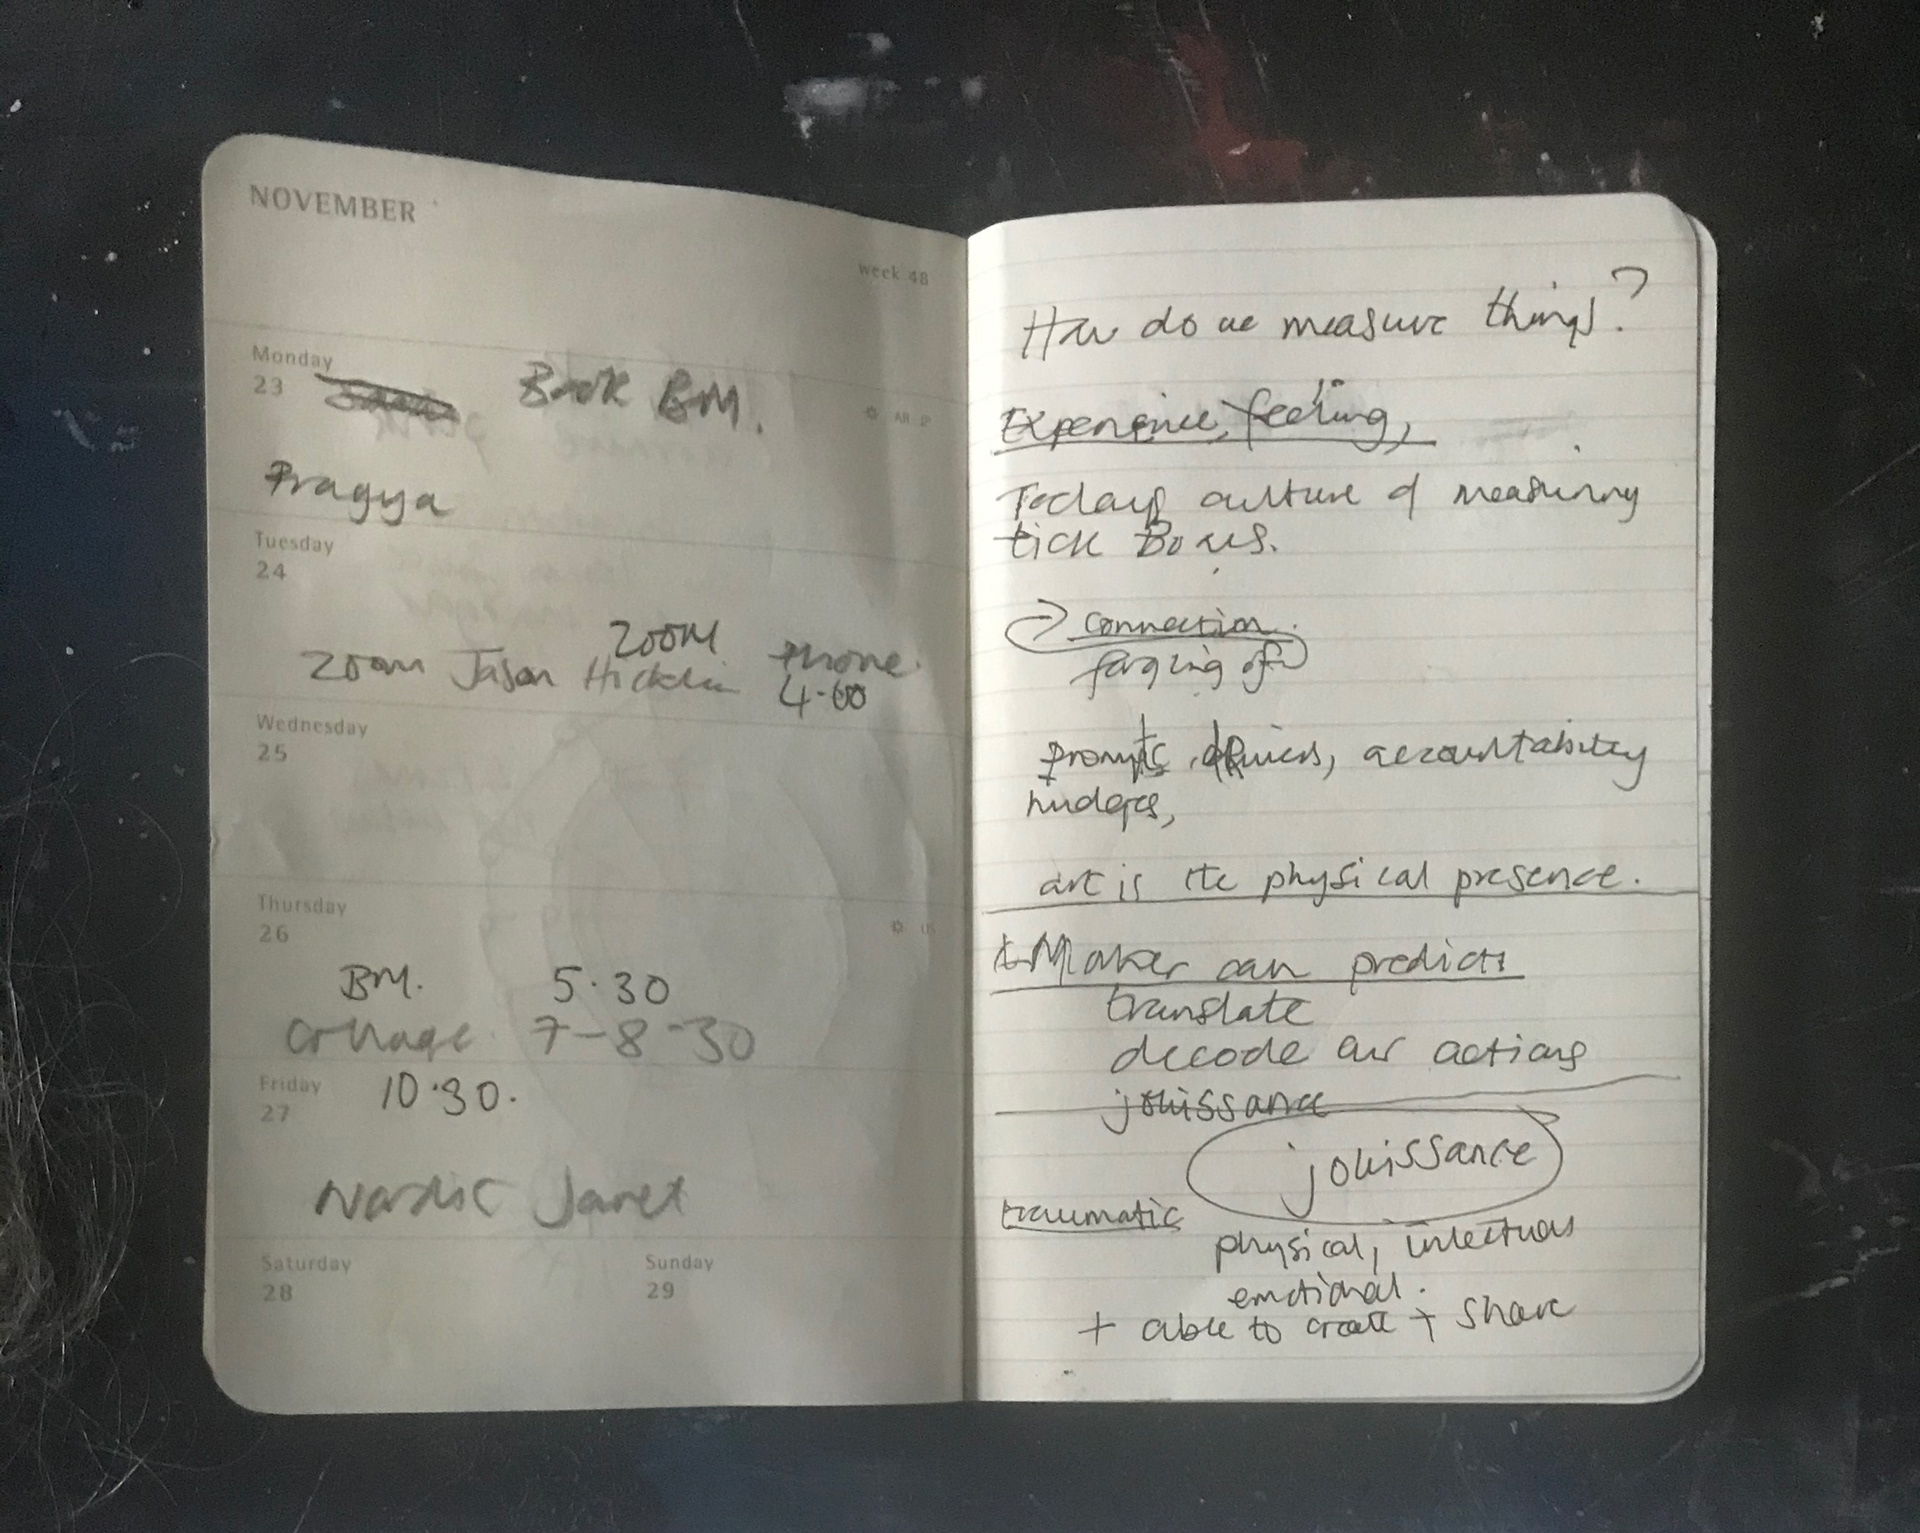 NOVEMBER
week 48
Monday
23
Book BM.
Pragya
Tuesday
24
zoom
zoom Jason Hicklin phone
4.00
Wednesday
25
Thursday
26
BM. 5.30
Collage 7-8-30
Friday
27
10.30.
Nordic Janet
Saturday
28
Sunday
29
How do we measure things?
Experience, feeling,
Todays culture of measuring
tick Boxes.
connection.
forging of
prompts, accountability
nudges,
art is the physical presence.
Maker can predict
translate
decode our actions
jouissance
jouissance
traumatic
physical,
emotional.
+ able to create + share